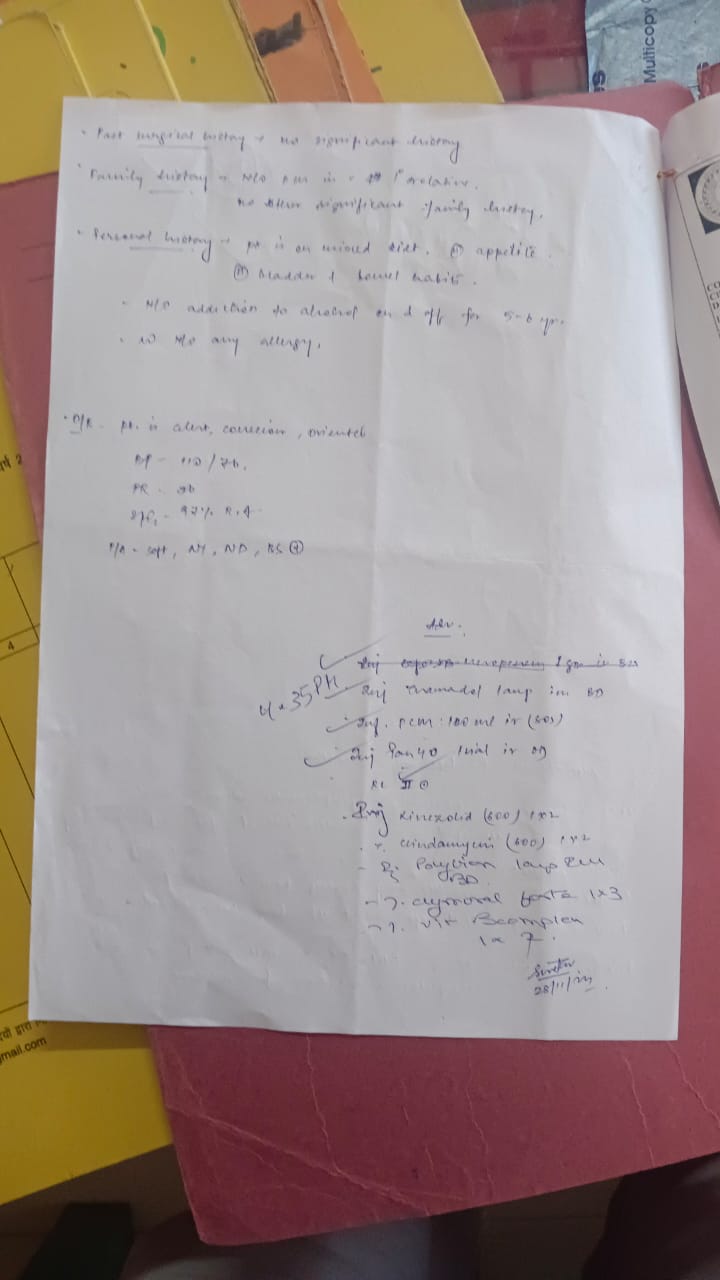 Multicopy
• Past surgical history → no significant history
• Family history → H/O DM in 1° relative.
no other significant family history.
• Personal history → pt. is on mixed diet. Ⓝ appetite.
Ⓝ bladder & bowel habits.
- H/O addiction to alcohol on & off for 5-6 yr.
- no H/O any allergy.
• O/E - pt. is alert, conscious, oriented
BP - 110/76.
PR - 96
SPO2 - 97% R.A.
P/A - soft, NT, ND, BS ⊕
Adv.
Inj meropenem 1 gm iv
4:35 PM
Inj Tramadol 1amp im BD
Inf. PCM 100 ml iv (SOS)
Inj Pan 40 1vial iv OD
- Inj Linezolid (600) 1x2
- T. Clindamycin (600) 1x2
Polybion 1amp
BD
- T. chymoral forte 1x3
- T. Vit Bcomplex
1x
28/11/
4
gmail.com